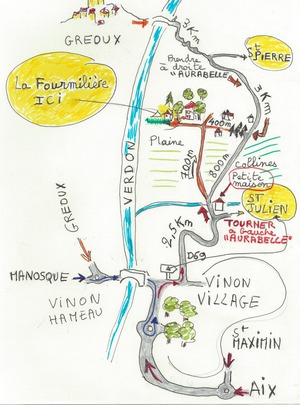 GREOUX
3Km
Prendre
à droite
"AURABELLE"
St
PIERRE
La Fourmilière
ICI
3Km
400m
Plaine
700m
800m
collines
Petite
maison
VERDON
ST
JULIEN
TOURNER
à Gauche
"AURABELLE"
2,5Km
GREOUX
D69
MANOSQUE
VINON
HAMEAU
VINON
VILLAGE
St
MAXIMIN
AIX